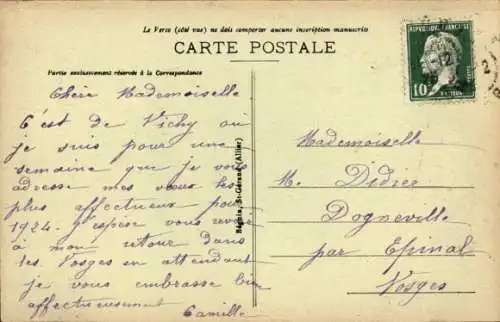 Le Verso (côté vue) ne doit comporter aucune inscription manuscrite
CARTE POSTALE
Partie exclusivement réservée à la Correspondance
Chère Mademoiselle
C'est de Vichy où
je suis pour une
semaine que je vous
adresse mes vœux les
plus affectueux pour
1924. J'espère vous revoir
à mon retour dans
les Vosges en attendant
je vous embrasse bien
affectueusement
Camille
Béguin, St-Gérand (Allier)
10
Mademoiselle
M. Didier
Dogneville
par Epinal
Vosges